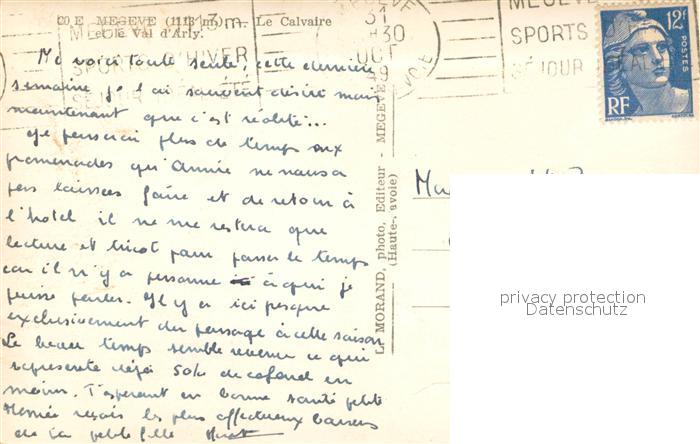 20 E MEGEVE (1113 m) Le Calvaire
et le Val d'Arly.
MEGEVE
31
1830
OCT
49
VOIE
MEGEVE
SPORTS D'HIVER
SÉJOUR
MEGEVE
SPORTS D
SÉJOUR
12F
POSTES
RF
Me voici toute seule, cette dernière
semaine je l'ai souvent désiré mais
maintenant que c'est réalité...
Je passerai plus de temps aux
promenades qu'Annie ne nous a
pas laissées faire et de retour à
l'hôtel il ne me restera que
lecture et tricot pour passer le temps
car il n'y a personne à qui je
puisse parler. Il y a ici presque
exclusivement du passage à cette saison
Le beau temps semble revenu ce qui
représente déjà 50% de cafard en
moins. T'espérant en bonne santé petite
Mémée reçois les plus affectueux baisers
de ta petite fille
L. MORAND, photo, Editeur - MEGEVE
(Haute-Savoie)
privacy protection
Datenschutz